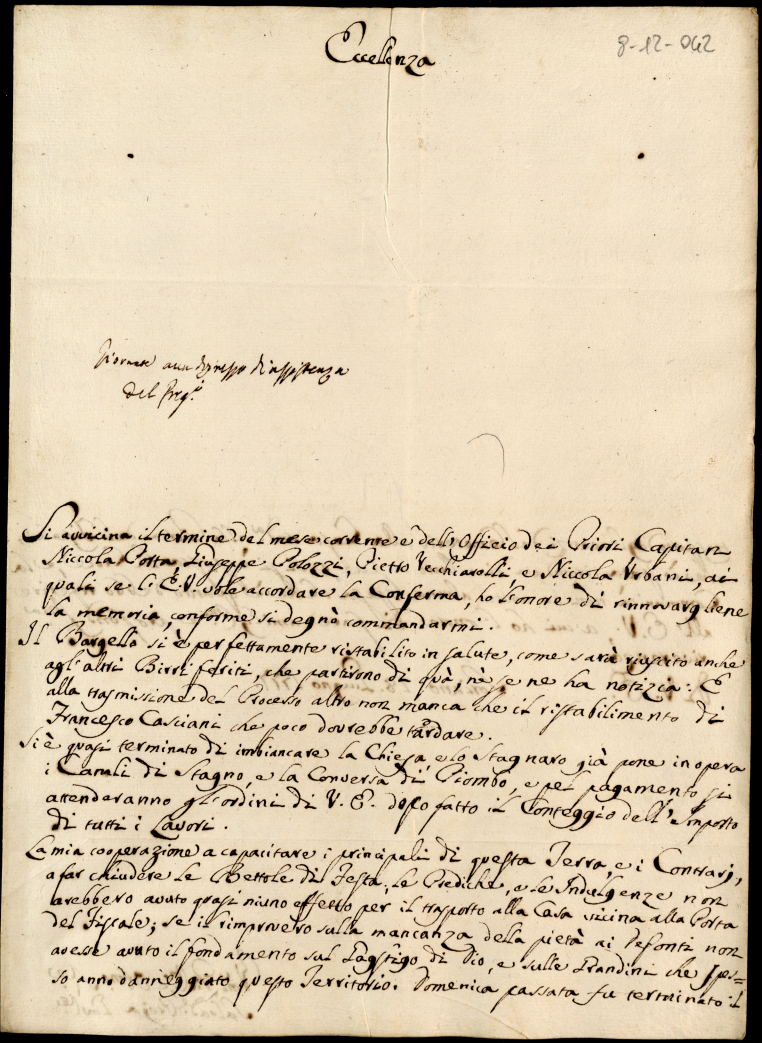 8-12-042
Eccellenza
del
Si avvicina il termine del mese corrente e dell'Officio dei Priori, Capitan
Niccola Porta, Giuseppe Polozzi, Pietro Vecchiarolli, e Niccola Urbani, ai
quali se l'E.V. vole accordare la Conferma, ho l'onore di rinnovargliene
la memoria, conforme si degnò commandarmi.
Il Bargello si è perfettamente ristabilito in salute, come sarà riuscito anche
agl'altri Birri feriti, che partirono di quà, nè se ne ha notizia: E
alla trasmissione del Processo altro non manca che il ristabilimento di
Francesco Casciani che poco dovrebbe tardare.
Si è quasi terminato di imbiancare la Chiesa e lo Stagnaro già pone in opera
i Canali di Stagno, e la Conversa di Piombo, e pel pagamento si
attenderanno gl'ordini di V.E. dopo fatto il Conteggio dell'Importo
di tutti i Lavori.
La mia cooperazione a capacitare i principali di questa Terra, e i Contrarj,
a far chiudere le Bettole di Festa, le Prediche, e le Indulgenze non
arebbero avuto quasi niuno effetto per il trasporto alla Casa vicina alla Porta
del Fiscale; se il rimprovero sulla mancanza della pietà ai Defonti non
avesse avuto il fondamento sul Gastigo di Dio, e sulle Grandini che spes=
so anno danneggiato questo Territorio. Domenica passata fu terminato il